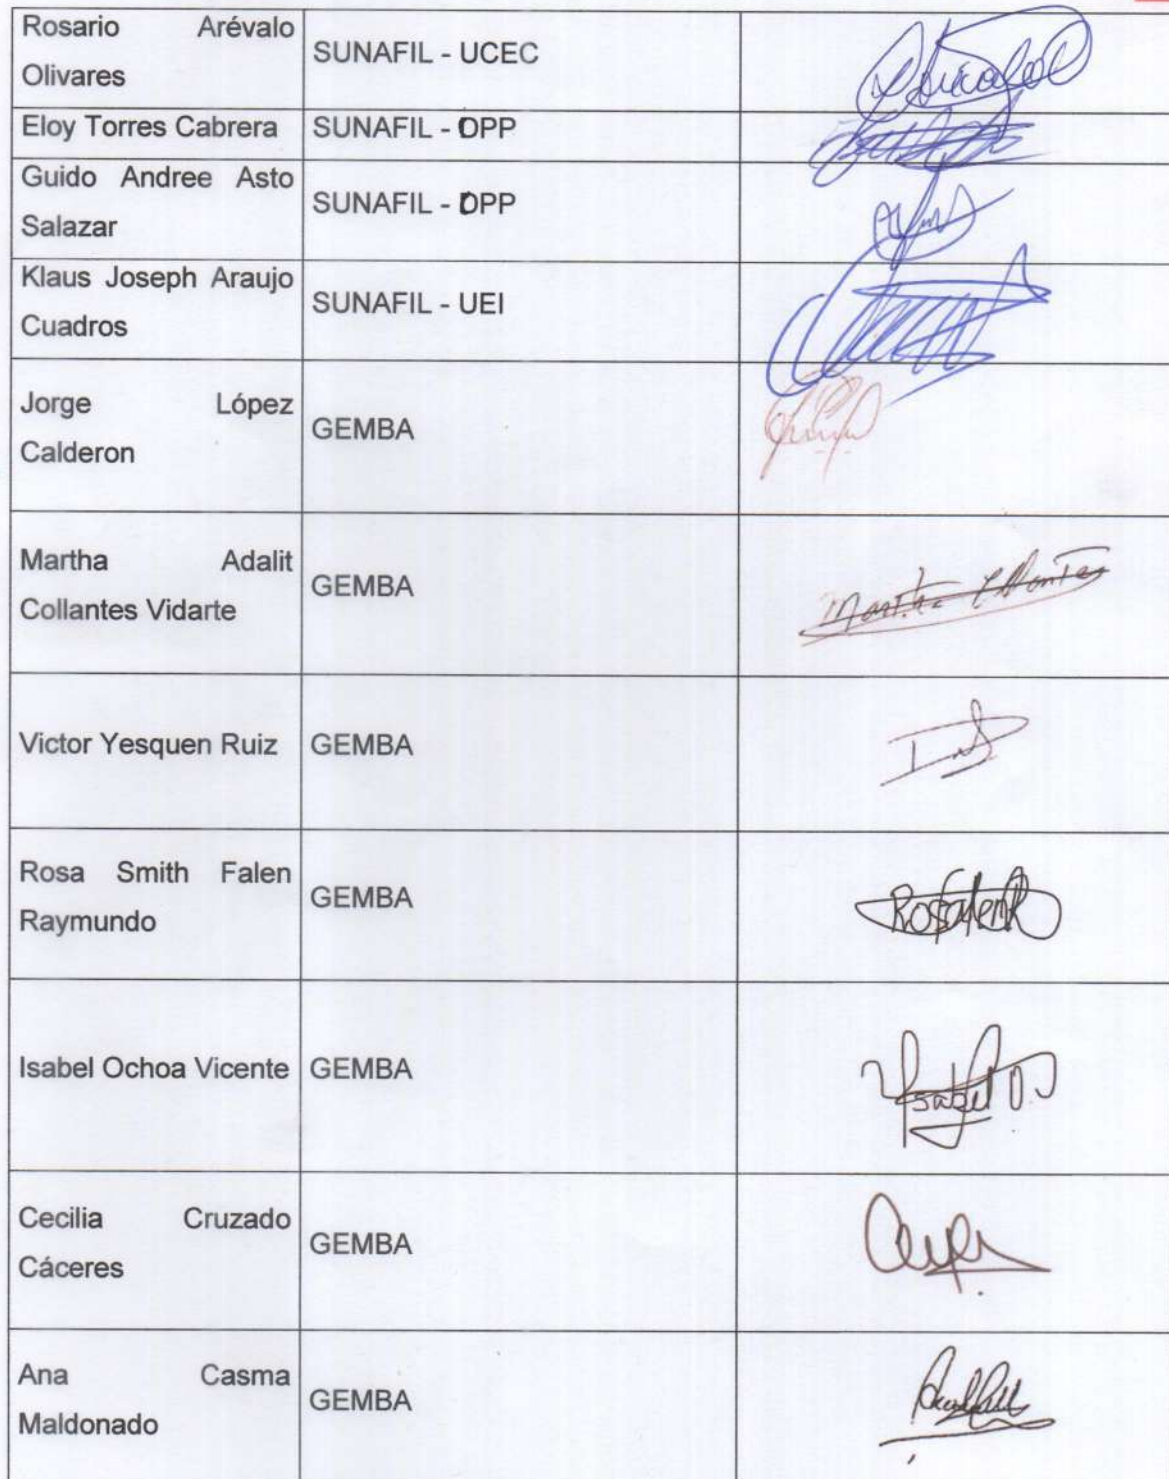 Rosario Arévalo
Olivares
SUNAFIL - UCEC
Eloy Torres Cabrera
SUNAFIL - OPP
Guido Andree Asto
Salazar
SUNAFIL - OPP
Klaus Joseph Araujo
Cuadros
SUNAFIL - UEI
Jorge López
Calderon
GEMBA
Martha Adalit
Collantes Vidarte
GEMBA
Victor Yesquen Ruiz
GEMBA
Rosa Smith Falen
Raymundo
GEMBA
Isabel Ochoa Vicente
GEMBA
Ysabel O.
Cecilia Cruzado
Cáceres
GEMBA
Ana Casma
Maldonado
GEMBA